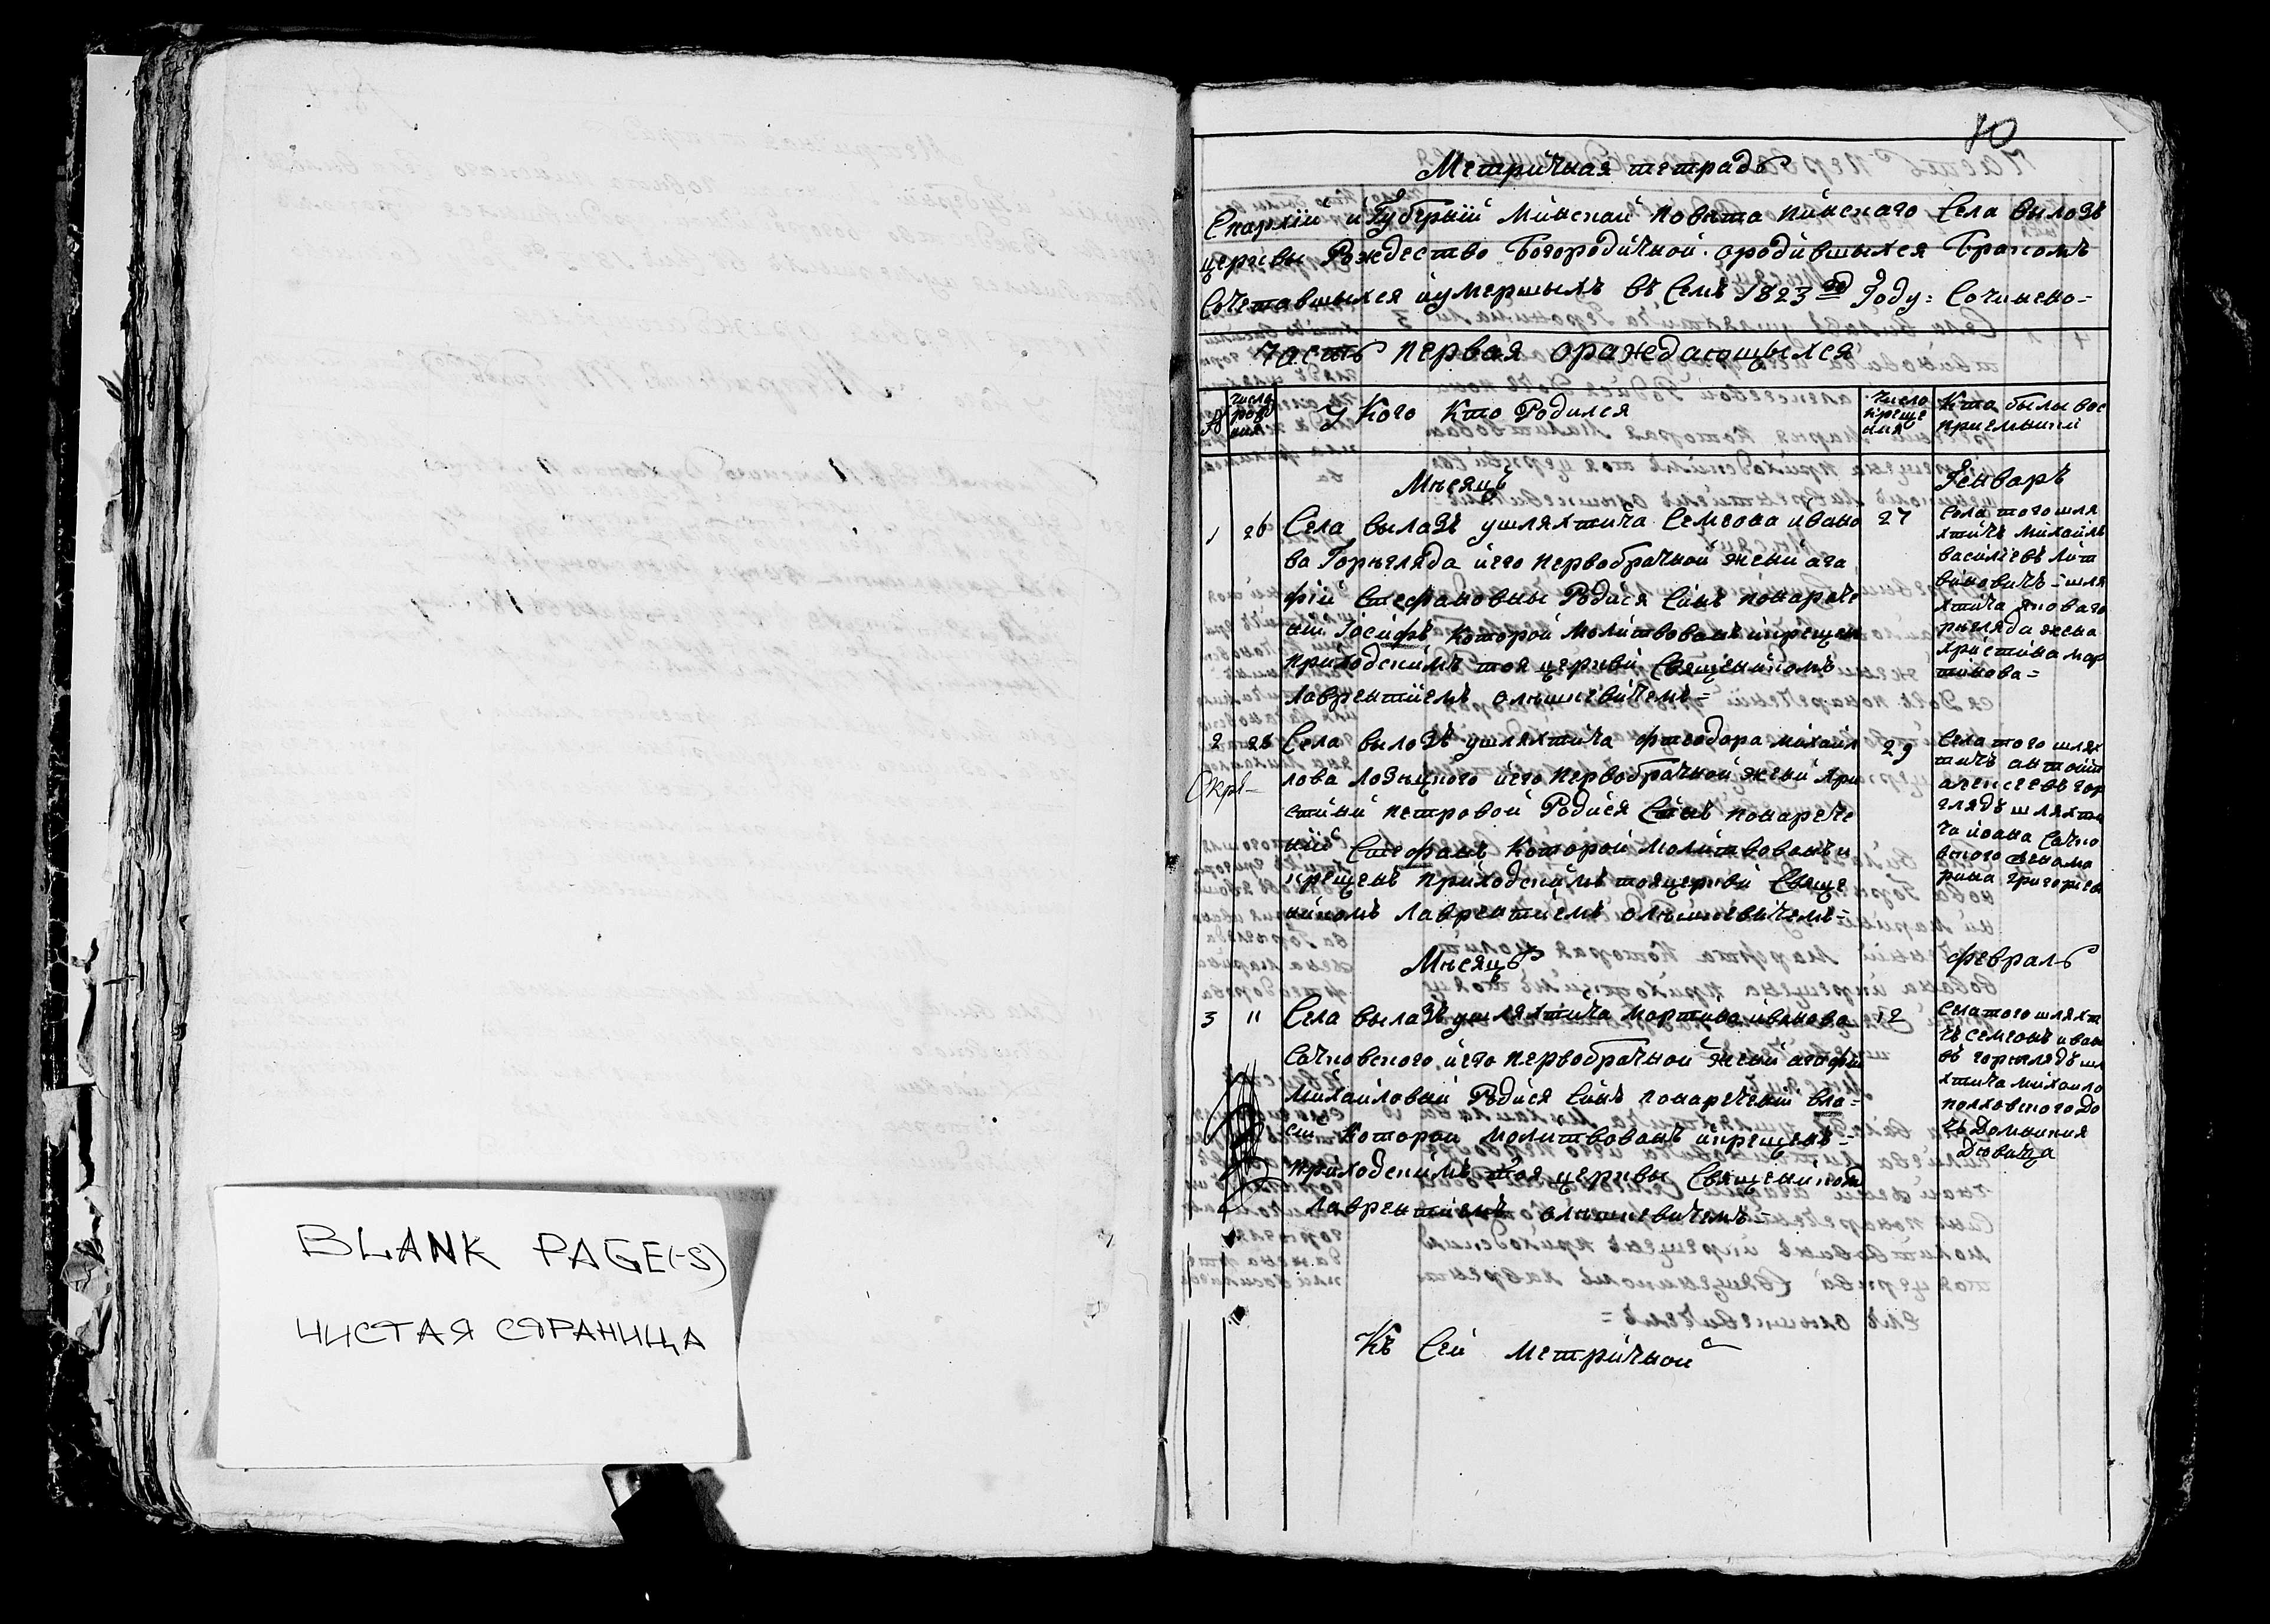 BLANK PAGE(-S)
ЧИСТАЯ СТРАНИЦА
10
Метричная тетрадь
Епархіи и Губерніи Минскай Повѣта пинскаго Села вылазъ
церквы Рождество Богородичной ородившихся Бракомъ
Сочетавшихся иумершыхъ въ Семъ 1823 Году: Сочинено=
Часть перваяораждающыхся
№
число рожд ния
У Кого Кто Родился
число креще ния
Кто былы вос
приемныки
Мѣсяцъ
Генваръ
1
26
Села вылазъ ушляхтича Семеона ивано
ва Горегляда иего первобрачной жены ага
фіи Стефановны Родися Синъ понарече
ни Іосифъ Которой Молитвованъ икрещен
приходскимъ тоя церкви Священикомъ
Лаврентіемъ олышевичемъ=
27
Села того шля
хтичъ Михайлъ
василиевъ Лит
виновичъ = шля
хтича якова го
рыгляда жена
христина мар
тинова=
2
28
Скрѣ
Села вылозъ ушляхтича фтеодора михаил
лова лозыцкого иего первобрачной жены хри
стины петровой Родися Синъ понарече
ний Стефанъ Которой Молитвованъ и
крещенъ приходскимъ тояцеркви Свяще
никомъ лаврентиемъ олышевичемъ=
29
Села того шлях
тичъ антоній
алексеевъ гор
глядъ шляхти
ча иоана Сачко
вского жена ма
рина григориев
Мѣсяцъ
февраль
3
11
Села вылазъ ушляхтича Мартина иванова
Сачковского иего первобрачной жены агафии
Михайловый Родися Синъ понаречений вла=
сій Которой молитвованъ икрещенъ=
приходскимъ тоя церквы Священиком
Лаврентиемъ олышевичемъ=
12
Села того шляхт
чъ семеонъ иван
въ горыглядъ шл
хтича михаило
полховского до
чъ Домникия
Дювица
Къ Сей метричной